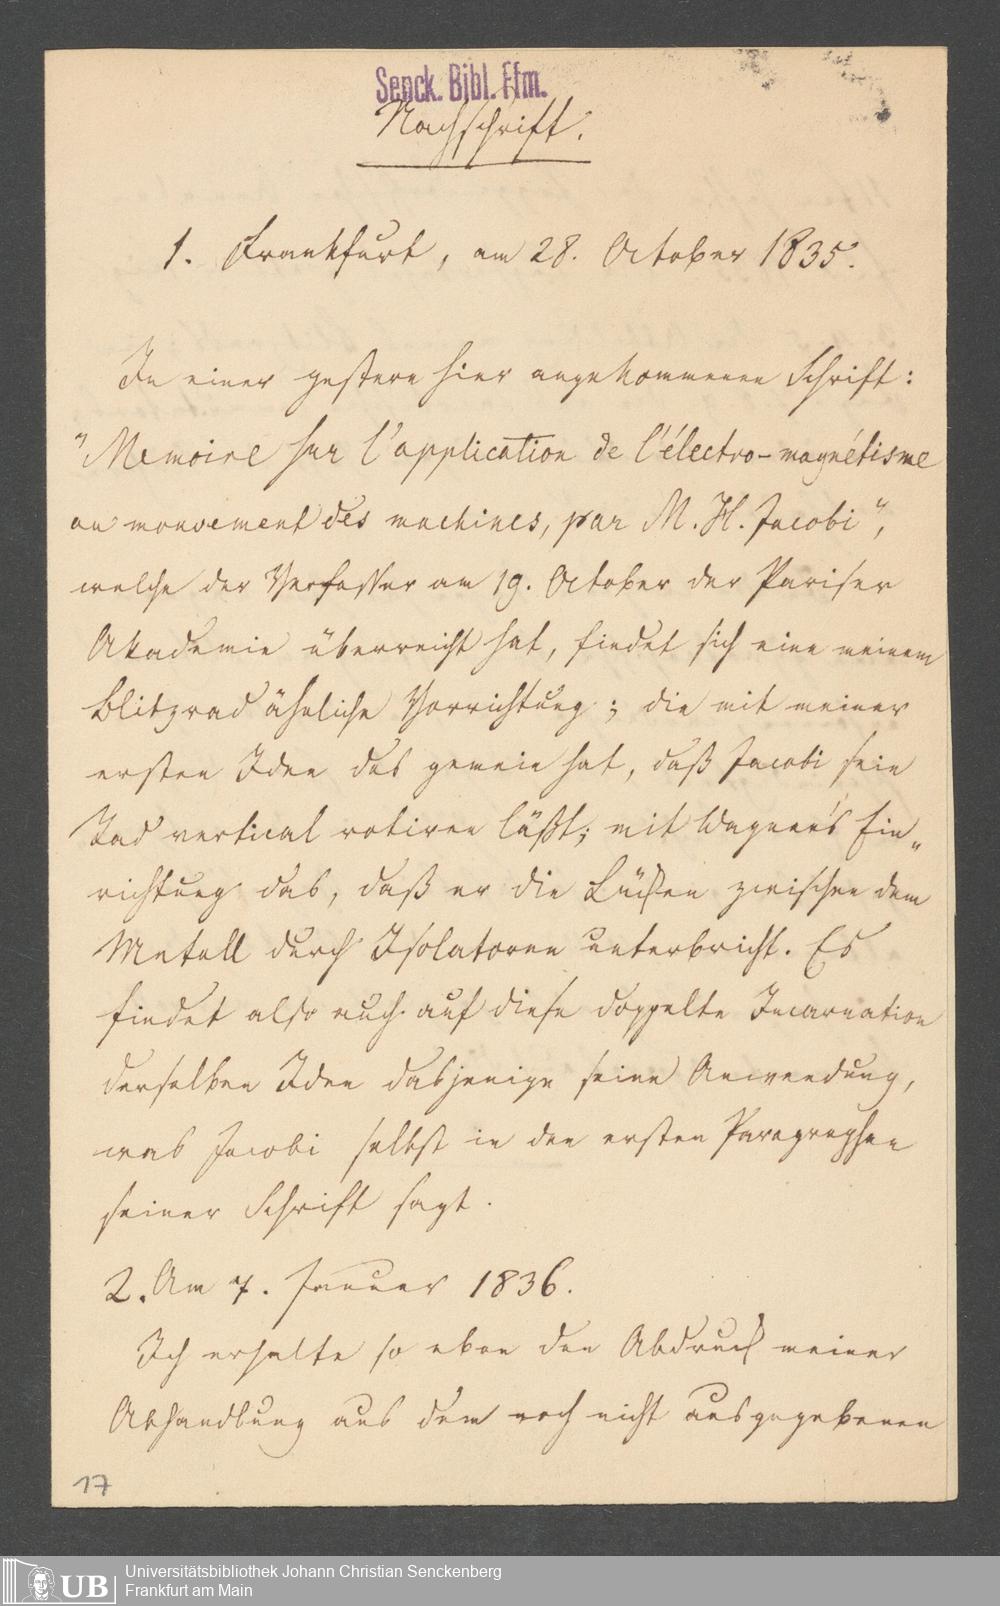 Senck. Bibl. Ffm.
Nachschrift.
1. Frankfurt, am 28. October 1835.
In einer gestern hier angekommenen Schrift:
"Memoire sur l'application de l'électro-magnétisme
au mouvement des machines, par M. H. Jacobi",
welche der Verfasser am 19. October der Pariser
Akademie überreicht hat, findet sich eine meinem
Blitzrad ähnliche Vorrichtung; die mit meiner
ersten Idee das gemein hat, daß Jacobi sein
Rad vertical rotiren läßt; mit Wagner's Ein„
richtung das, daß er die Lücken zwischen dem
Metall durch Isolatoren unterbricht. Es
findet also auch auf diese doppelte Incarnation
derselben Idee dasjenige seine Anwendung,
was Jacobi selbst in den ersten Paragraphen
seiner Schrift sagt.
2. Am 7. Januar 1836.
Ich erhalte so eben den Abdruck meiner
Abhandlung aus dem noch nicht ausgegebenen
17
UB
Universitätsbibliothek Johann Christian Senckenberg
Frankfurt am Main